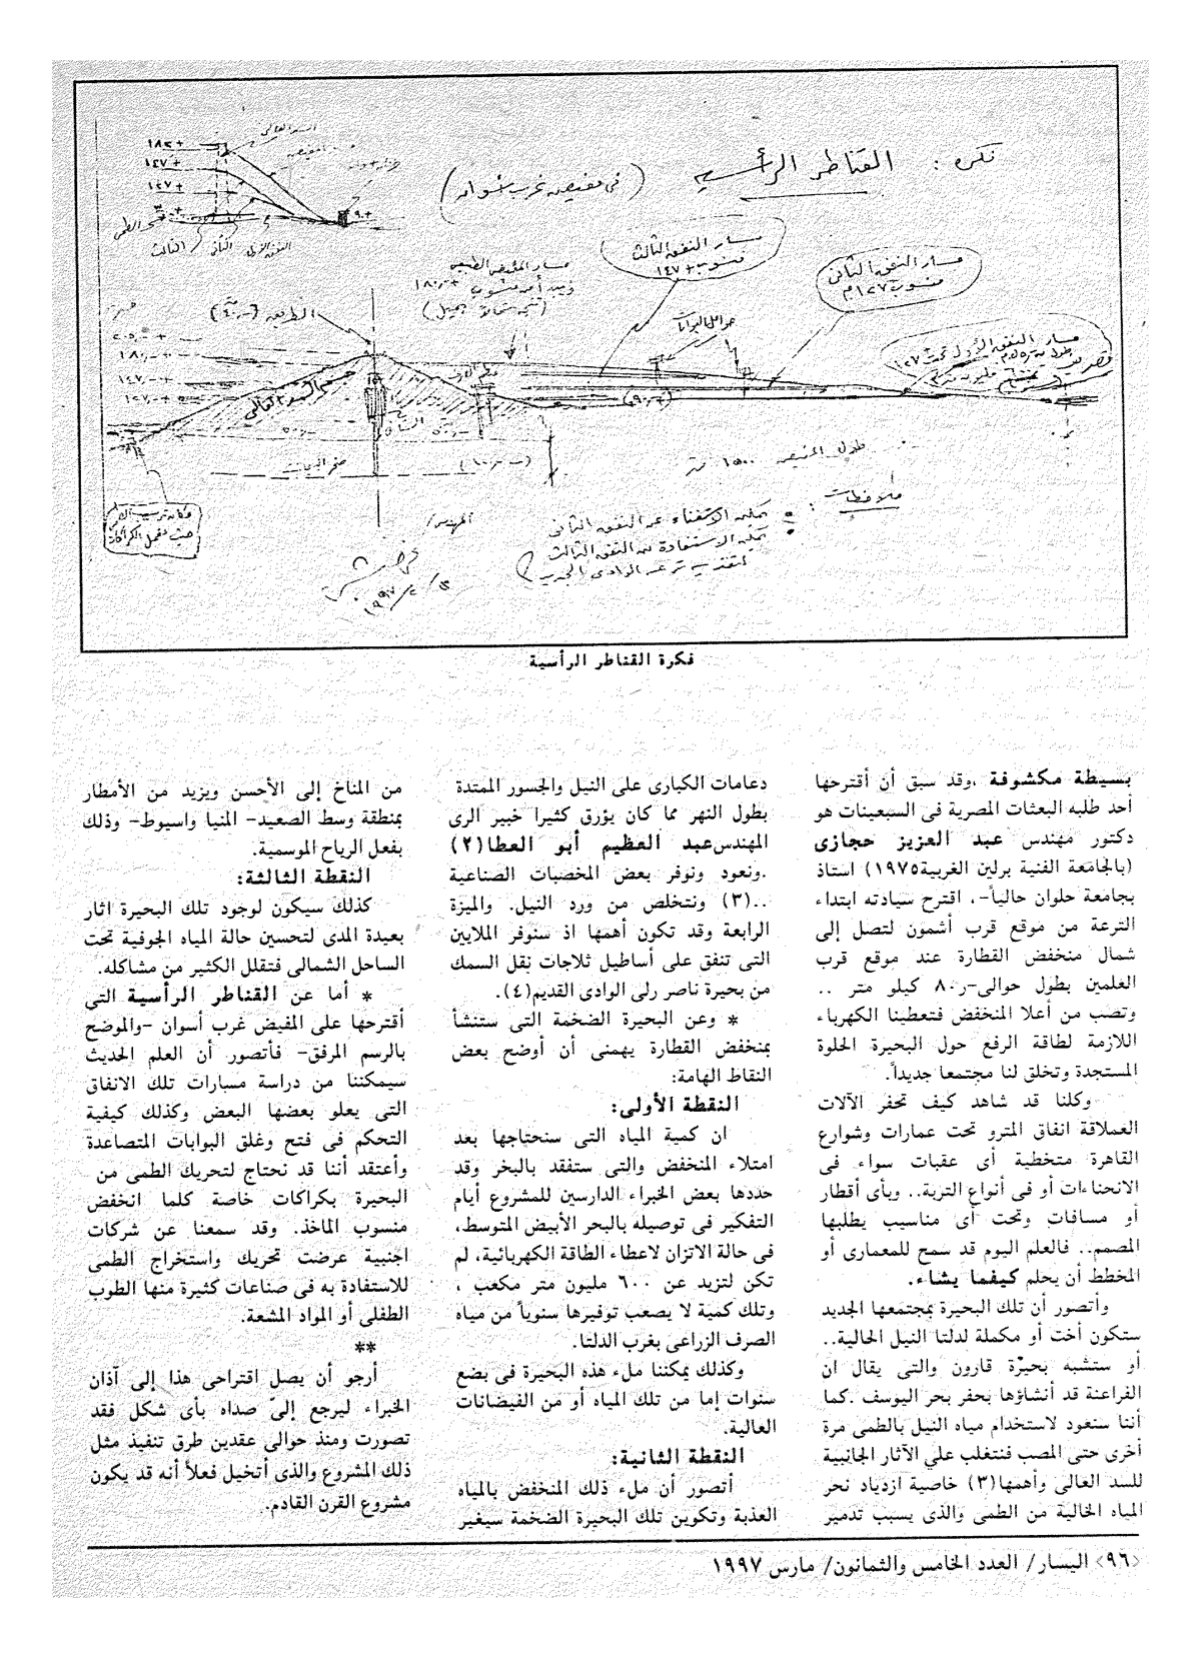 فكرة : القناطر الرأسية (فى مفيض غرب أسوان)
السد العالى
المفيض
+١٨٢
+١٤٧
+١٢٧
+٩٠
الثالث
الثانى
مسار النفق الثالث
منسوب +١٤٧
مسار النفق الثانى
منسوب ١٢٧م
مسار المفيض الطبيعى
١٨٠
جسم السد العالى
طول المفيض ١٥٠٠ متر
ملاحظات :
يمكن الاستغناء عن النفق الثانى
يمكن الاستفادة من النفق الثالث
المهندس/
١٩٩٧
فكرة القناطر الرأسية
بسيطة مكشوفة .وقد سبق أن أقترحها
أحد طلبه البعثات المصرية فى السبعينات هو
دكتور مهندس عبد العزيز حجازى
(بالجامعة الفنية برلين الغربية١٩٧٥) استاذ
بجامعة حلوان حالياً-، اقترح سيادته ابتداء
الترعة من موقع قرب أشمون لتصل إلى
شمال منخفض القطارة عند موقع قرب
العلمين بطول حوالى-ر٨٠ كيلو متر ..
وتصب من أعلا المنخفض فتعطينا الكهرباء
اللازمة لطاقة الرفع حول البحيرة الحلوة
المستجدة وتخلق لنا مجتمعا جديداً.
وكلنا قد شاهد كيف تحفر الآلات
العملاقة انفاق المترو تحت عمارات وشوارع
القاهرة متخطية أى عقبات سواء فى
الانحناءات أو فى أنواع التربة.. وبأى أقطار
أو مسافات وتحت أى مناسيب يطلبها
المصمم.. فالعلم اليوم قد سمح للمعمارى أو
المخطط أن يحلم كيفما يشاء.
وأتصور أن تلك البحيرة بمجتمعها الجديد
ستكون أخت أو مكملة لدلتا النيل الحالية..
أو ستشبه بحيرة قارون والتى يقال ان
الفراعنة قد أنشاؤها بحفر بحر اليوسف .كما
أننا سنعود لاستخدام مياه النيل بالطمى مرة
أخرى حتى المصب فنتغلب علي الآثار الجانبية
للسد العالى وأهمها(٣) خاصية ازدياد نحر
المياه الخالية من الطمى والذى يسبب تدمير
دعامات الكبارى على النيل والجسور الممتدة
بطول النهر مما كان يؤرق كثيرا خبير الرى
المهندس‎عبد العظيم أبو العطا(٢)
.ونعود ونوفر بعض المخصبات الصناعية
..(٣) ونتخلص من ورد النيل. والميزة
الرابعة وقد تكون أهمها اذ سنوفر الملايين
التى تنفق على أساطيل ثلاجات نقل السمك
من بحيرة ناصر رلى الوادى القديم(٤).
* وعن البحيرة الضخمة التى ستنشأ
بمنخفض القطارة يهمنى أن أوضح بعض
النقاط الهامة:
النقطة الأولى:
ان كمية المياه التى سنحتاجها بعد
امتلاء المنخفض والتى ستفقد بالبخر وقد
حددها بعض الخبراء الدارسين للمشروع أيام
التفكير فى توصيله بالبحر الأبيض المتوسط،
فى حالة الاتزان لاعطاء الطاقة الكهربائية، لم
تكن لتزيد عن ٦٠٠ مليون متر مكعب ،
وتلك كمية لا يصعب توفيرها سنوياً من مياه
الصرف الزراعى بغرب الدلتا.
وكذلك يمكننا ملء هذه البحيرة فى بضع
سنوات إما من تلك المياه أو من الفيضانات
العالية.
النقطة الثانية:
أتصور أن ملء ذلك المنخفض بالمياه
العذبة وتكوين تلك البحيرة الضخمة سيغير
من المناخ إلى الأحسن ويزيد من الأمطار
بمنطقة وسط الصعيد- المنيا واسيوط- وذلك
بفعل الرياح الموسمية.
النقطة الثالثة:
كذلك سيكون لوجود تلك البحيرة اثار
بعيدة المدى لتحسين حالة المياه الجوفية تحت
الساحل الشمالى فتقلل الكثير من مشاكله.
* أما عن القناطر الرأسية التى
أقترحها على المفيض غرب أسوان -والموضح
بالرسم المرفق- فأتصور أن العلم الحديث
سيمكننا من دراسة مسارات تلك الانفاق
التى يعلو بعضها البعض وكذلك كيفية
التحكم فى فتح وغلق البوابات المتصاعدة
وأعتقد أننا قد نحتاج لتحريك الطمى من
البحيرة بكراكات خاصة كلما انخفض
منسوب الماخذ. وقد سمعنا عن شركات
اجنبية عرضت تحريك واستخراج الطمى
للاستفادة به فى صناعات كثيرة منها الطوب
الطفلى أو المواد المشعة.
**
أرجو أن يصل اقتراحى هذا إلى آذان
الخبراء ليرجع إلىّ صداه بأى شكل فقد
تصورت ومنذ حوالى عقدين طرق تنفيذ مثل
ذلك المشروع والذى أتخيل فعلاً أنه قد يكون
مشروع القرن القادم.
<٩٦> اليسار/ العدد الخامس والثمانون/ مارس ١٩٩٧